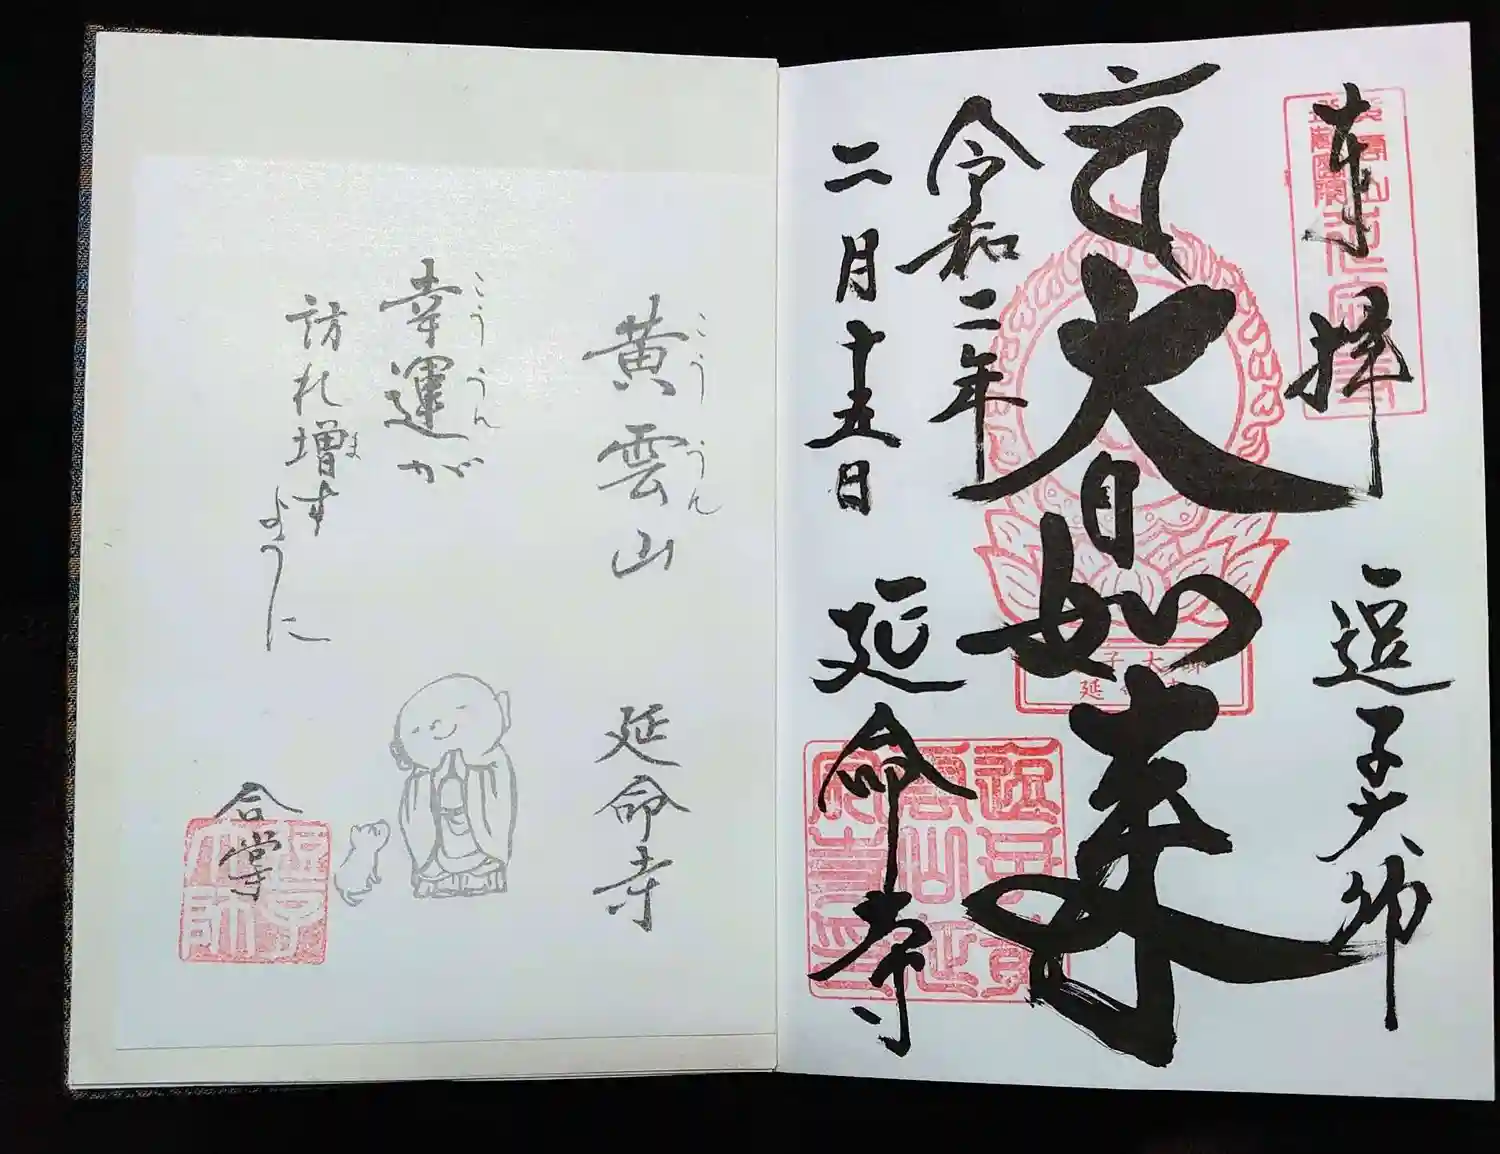 奉拝
逗子大師
大日如来
令和二年
二月十五日
延命寺
黄雲山
こううん
延命寺
幸運が
こううん
訪れ増す
ま
ように
合掌
逗子
大師